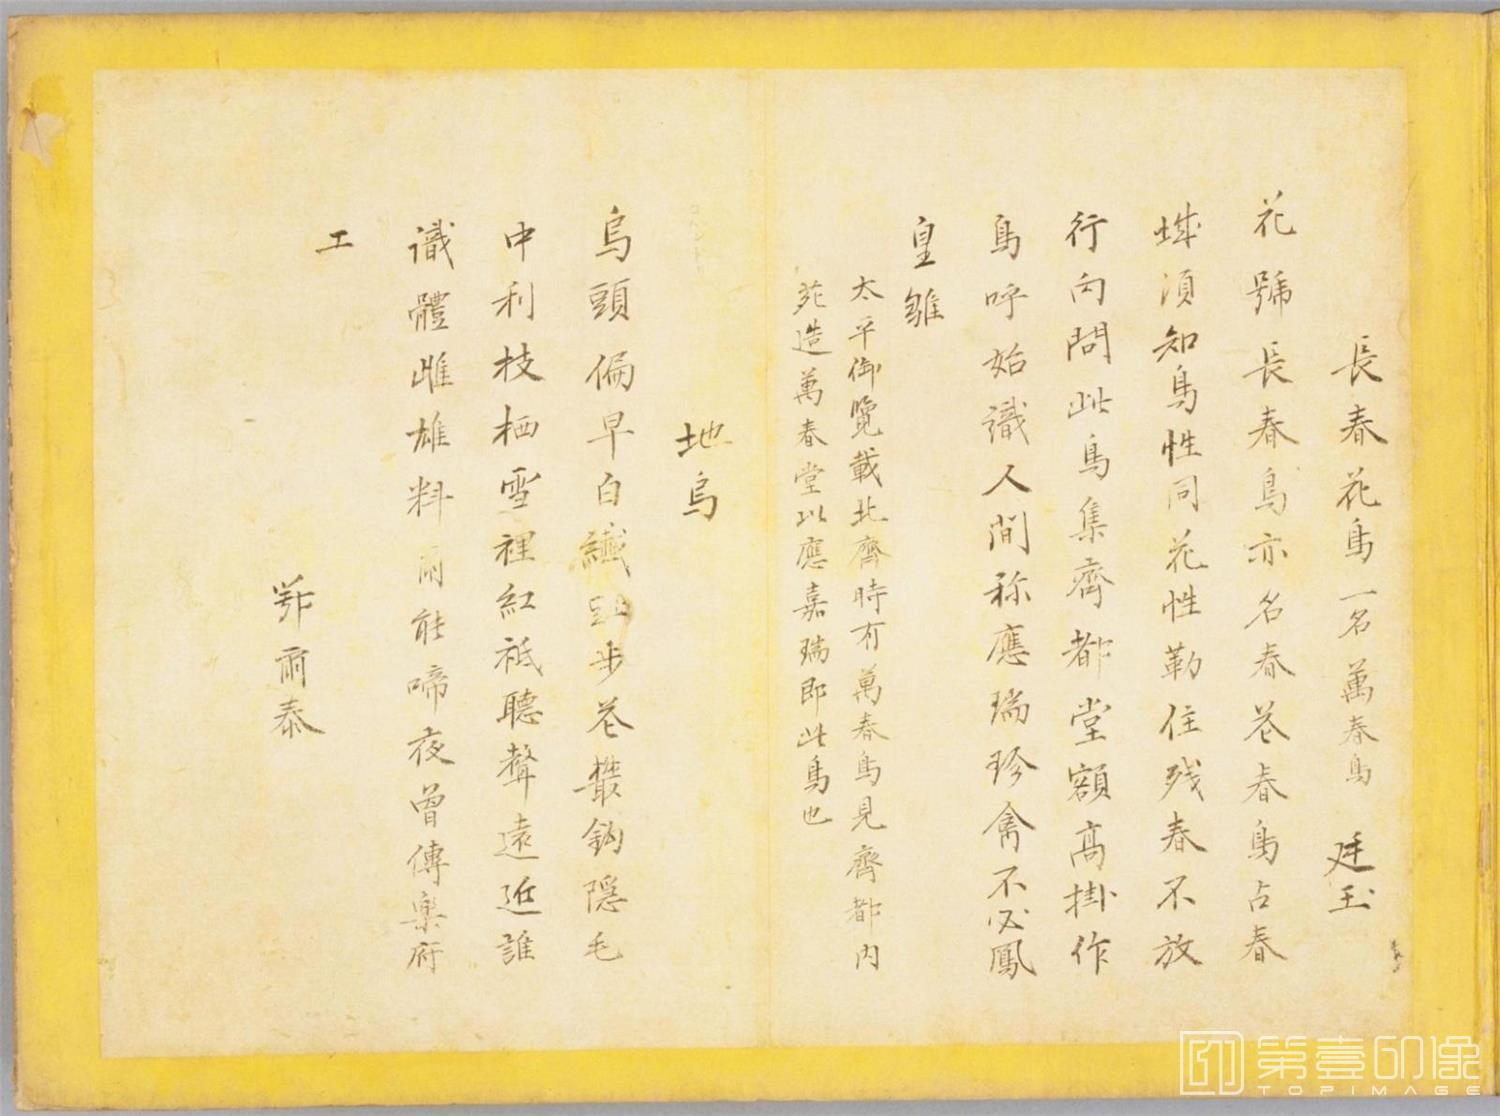 長春花鳥一名萬春鳥 廷玉
花號長春鳥亦名春花春鳥占春
城須知鳥性同花性勒住殘春不放
行向問此鳥集齊都堂額高掛作
鳥呼始識人間称應瑞珍禽不必鳳
皇雛
太平御覽載北齊時有萬春鳥見齊都內
苑造萬春堂以應嘉瑞即此鳥也
地烏
烏頭偏早白纖 步花叢鈎隱毛
中利枝栖雪裡紅祗聽聲遠近誰
識體雌雄料爾能啼夜曾傳樂府
工
鄂爾泰
第壹印像
TOPIMAGE